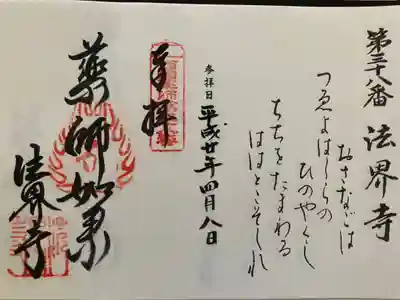 第三十八番 法界寺
おさなごは
つゑよはしらの
ひのやくし
ちちをたまわる
ははとこそしれ
参拝日 平成廿年四月八日
奉拝
薬師如来
法界寺